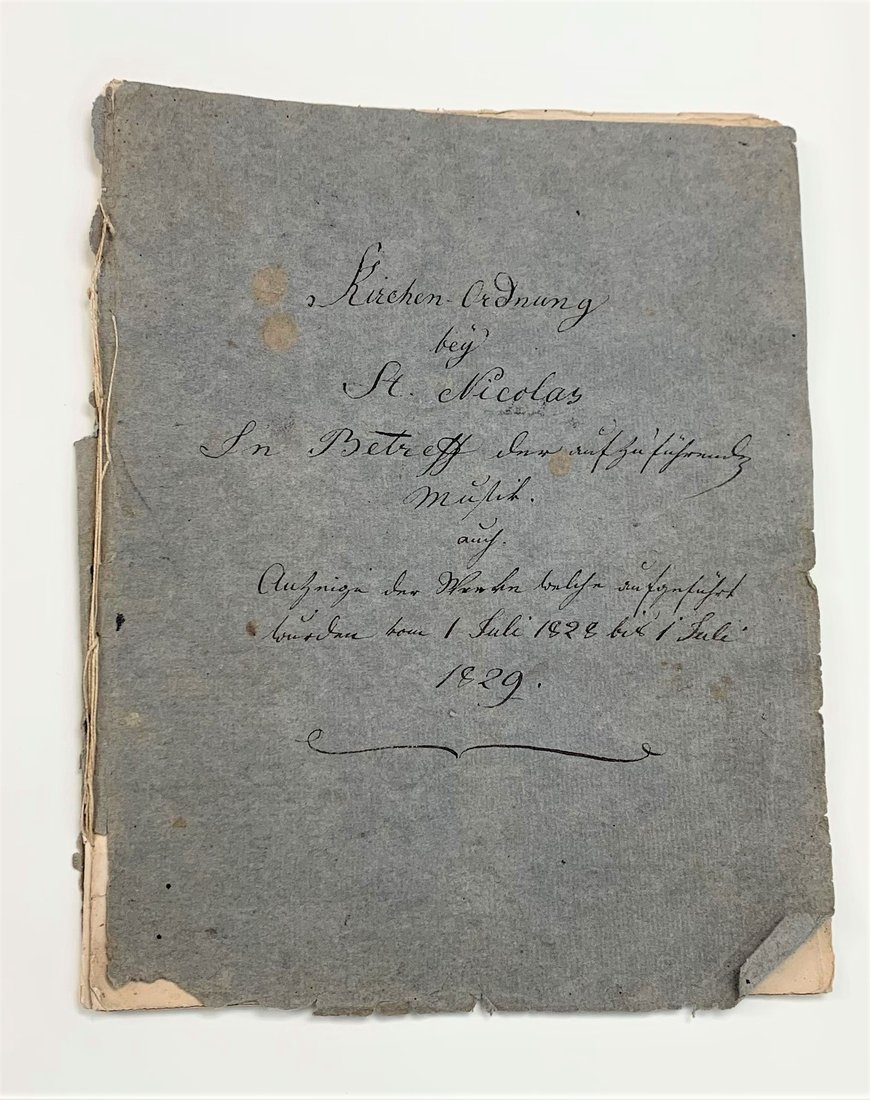 Kirchen-Ordnung
bey
St. Nicolas
In Betreff der aufzuführend
Musik.
auch.
Anzeige der Werke welche aufgeführt
wurden vom 1 Juli 1828 bis 1 Juli
1829.